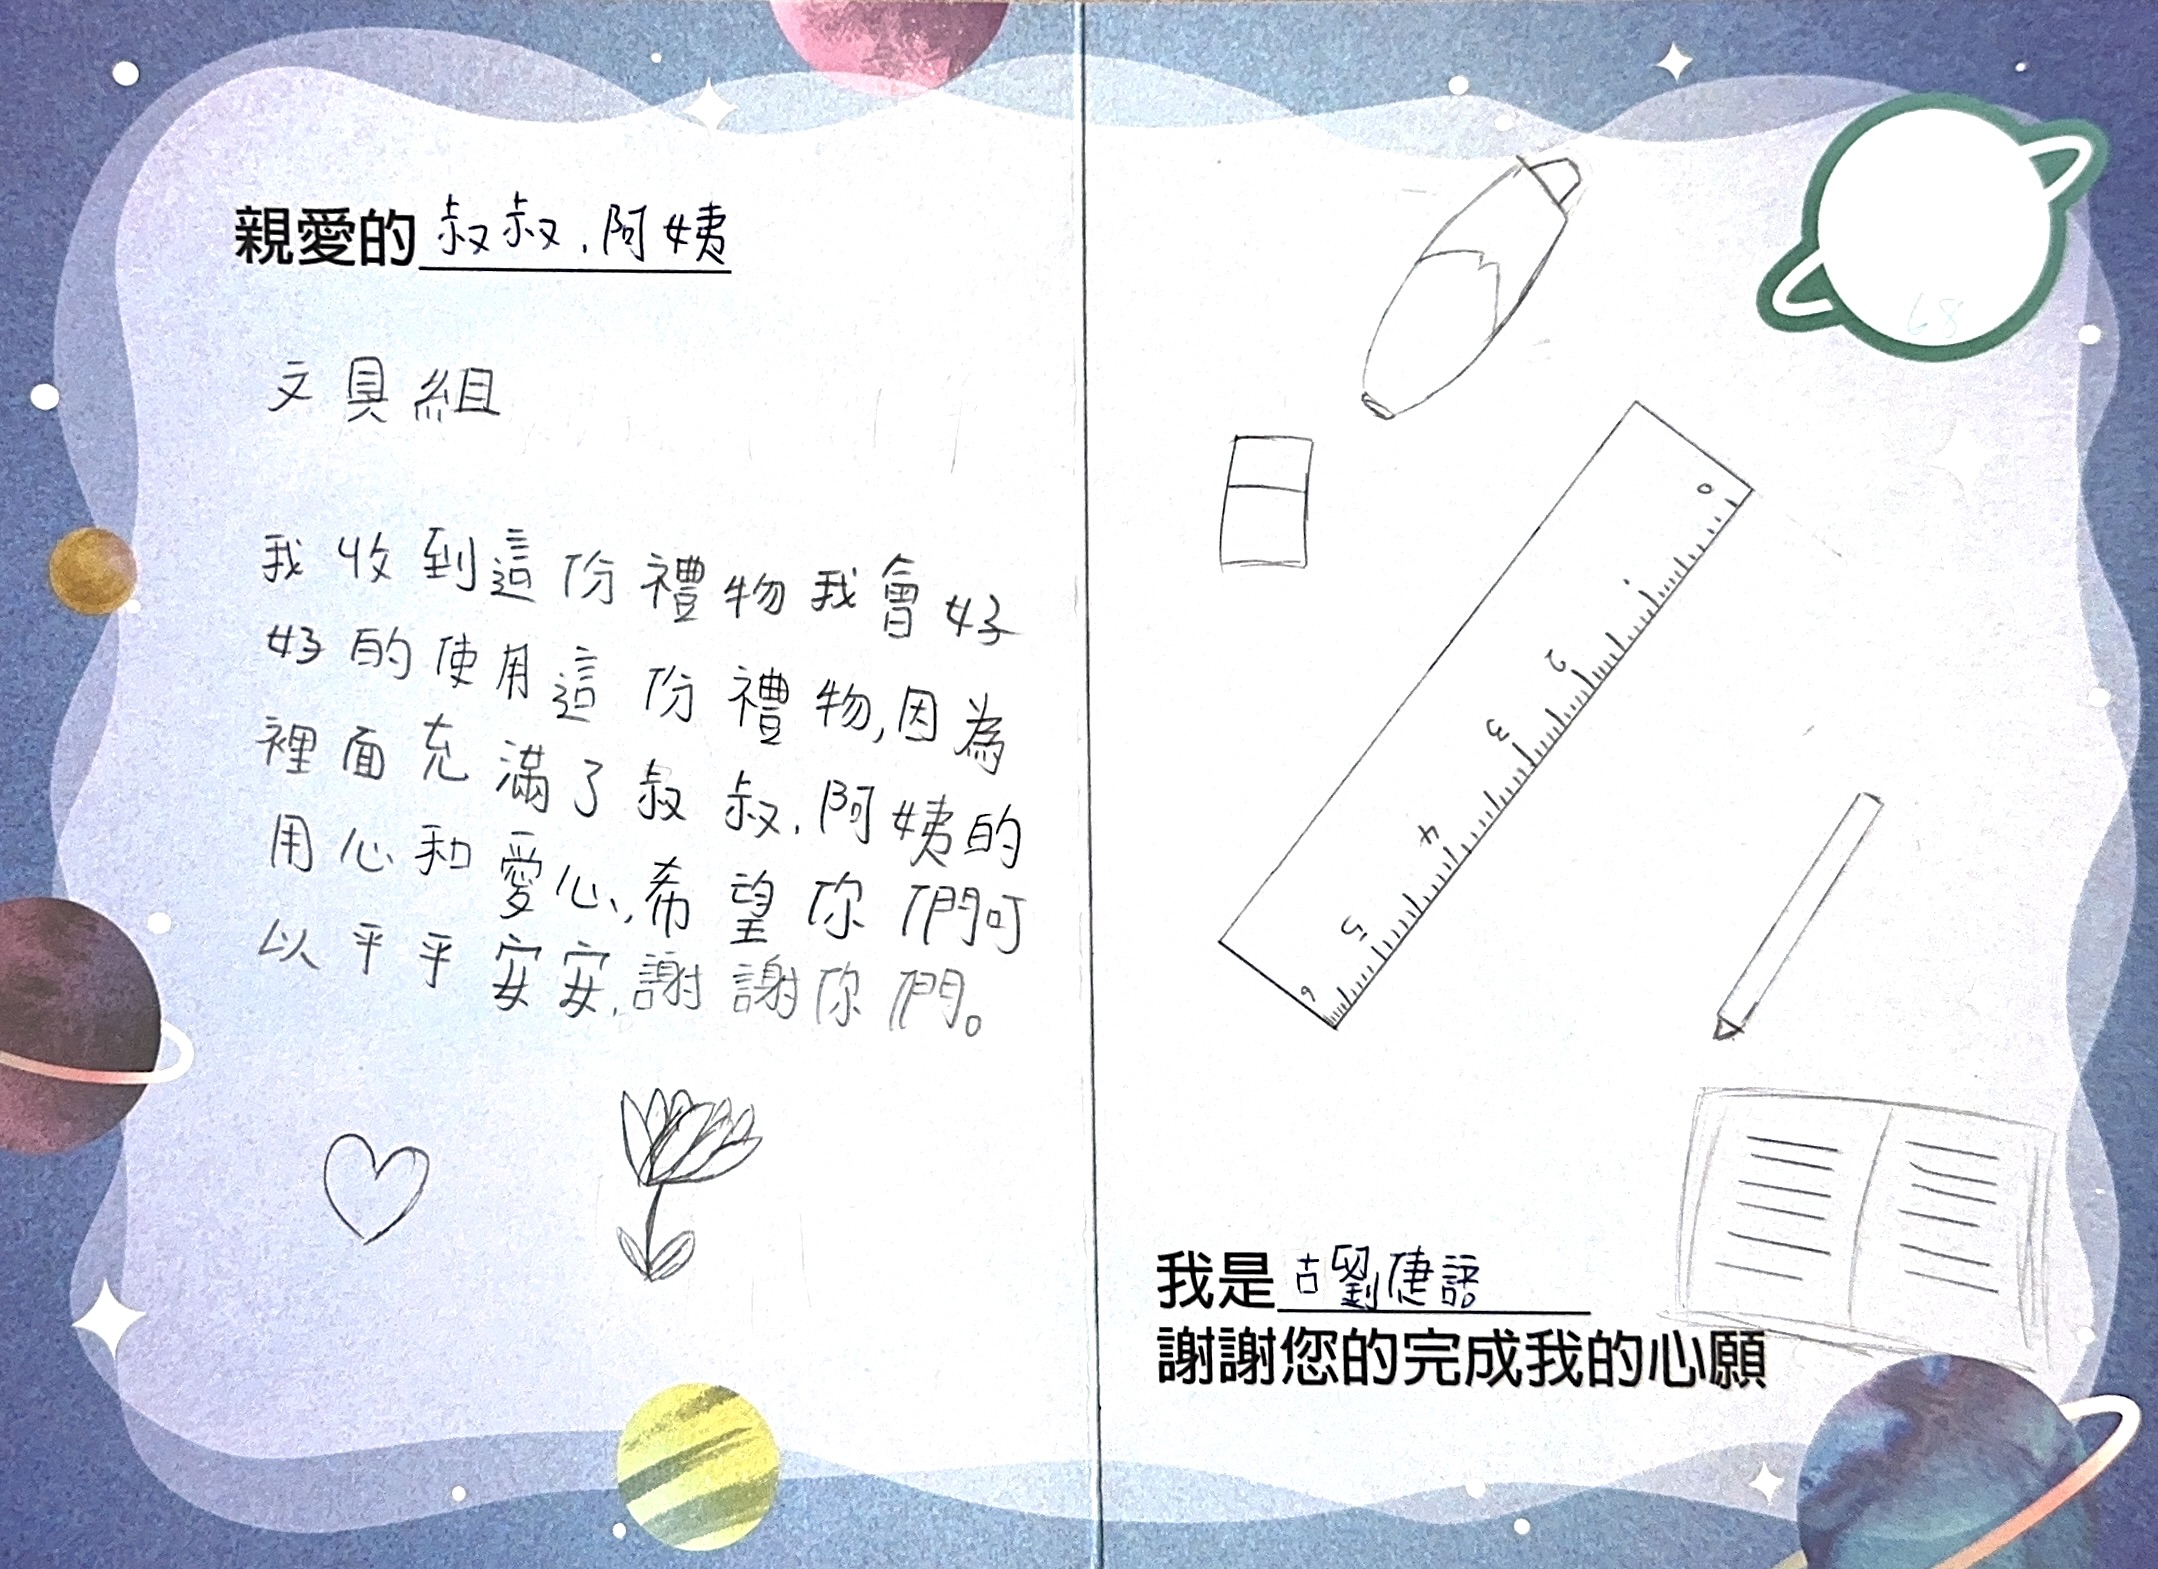 親愛的叔叔.阿姨
文具組
我收到這份禮物我會好
好的使用這份禮物,因為
裡面充滿了叔叔.阿姨的
用心和愛心,希望你們可
以平平安安,謝謝你們。
0
1
2
3
4
5
6
我是古劉倢語
謝謝您的完成我的心願